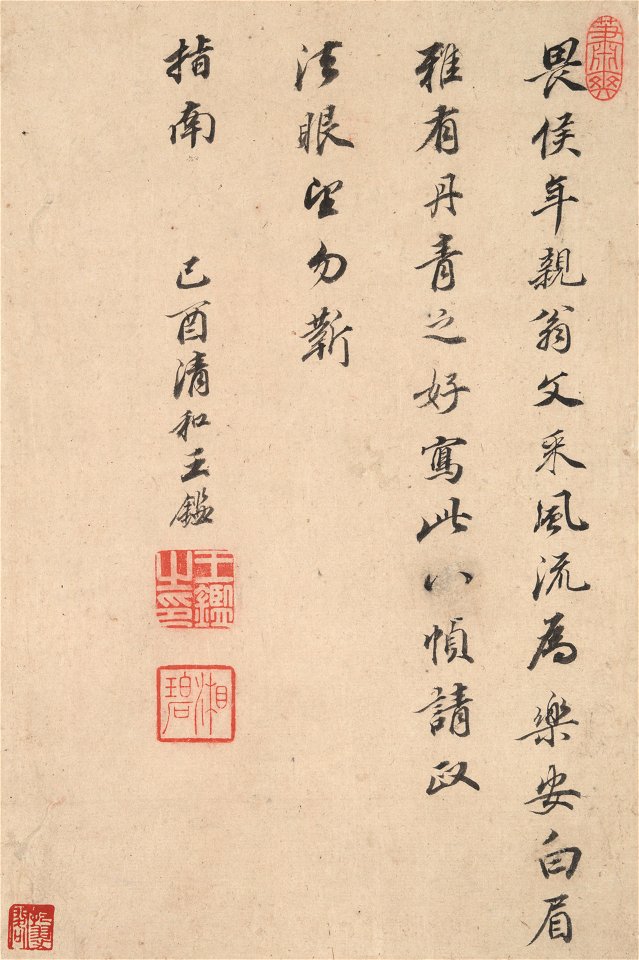 畏侯年親翁文采風流為樂安白眉
雅有丹青之好寫此八幀請政
法眼望勿靳
指南
己酉清和王鑑
王鑑之印
湘碧